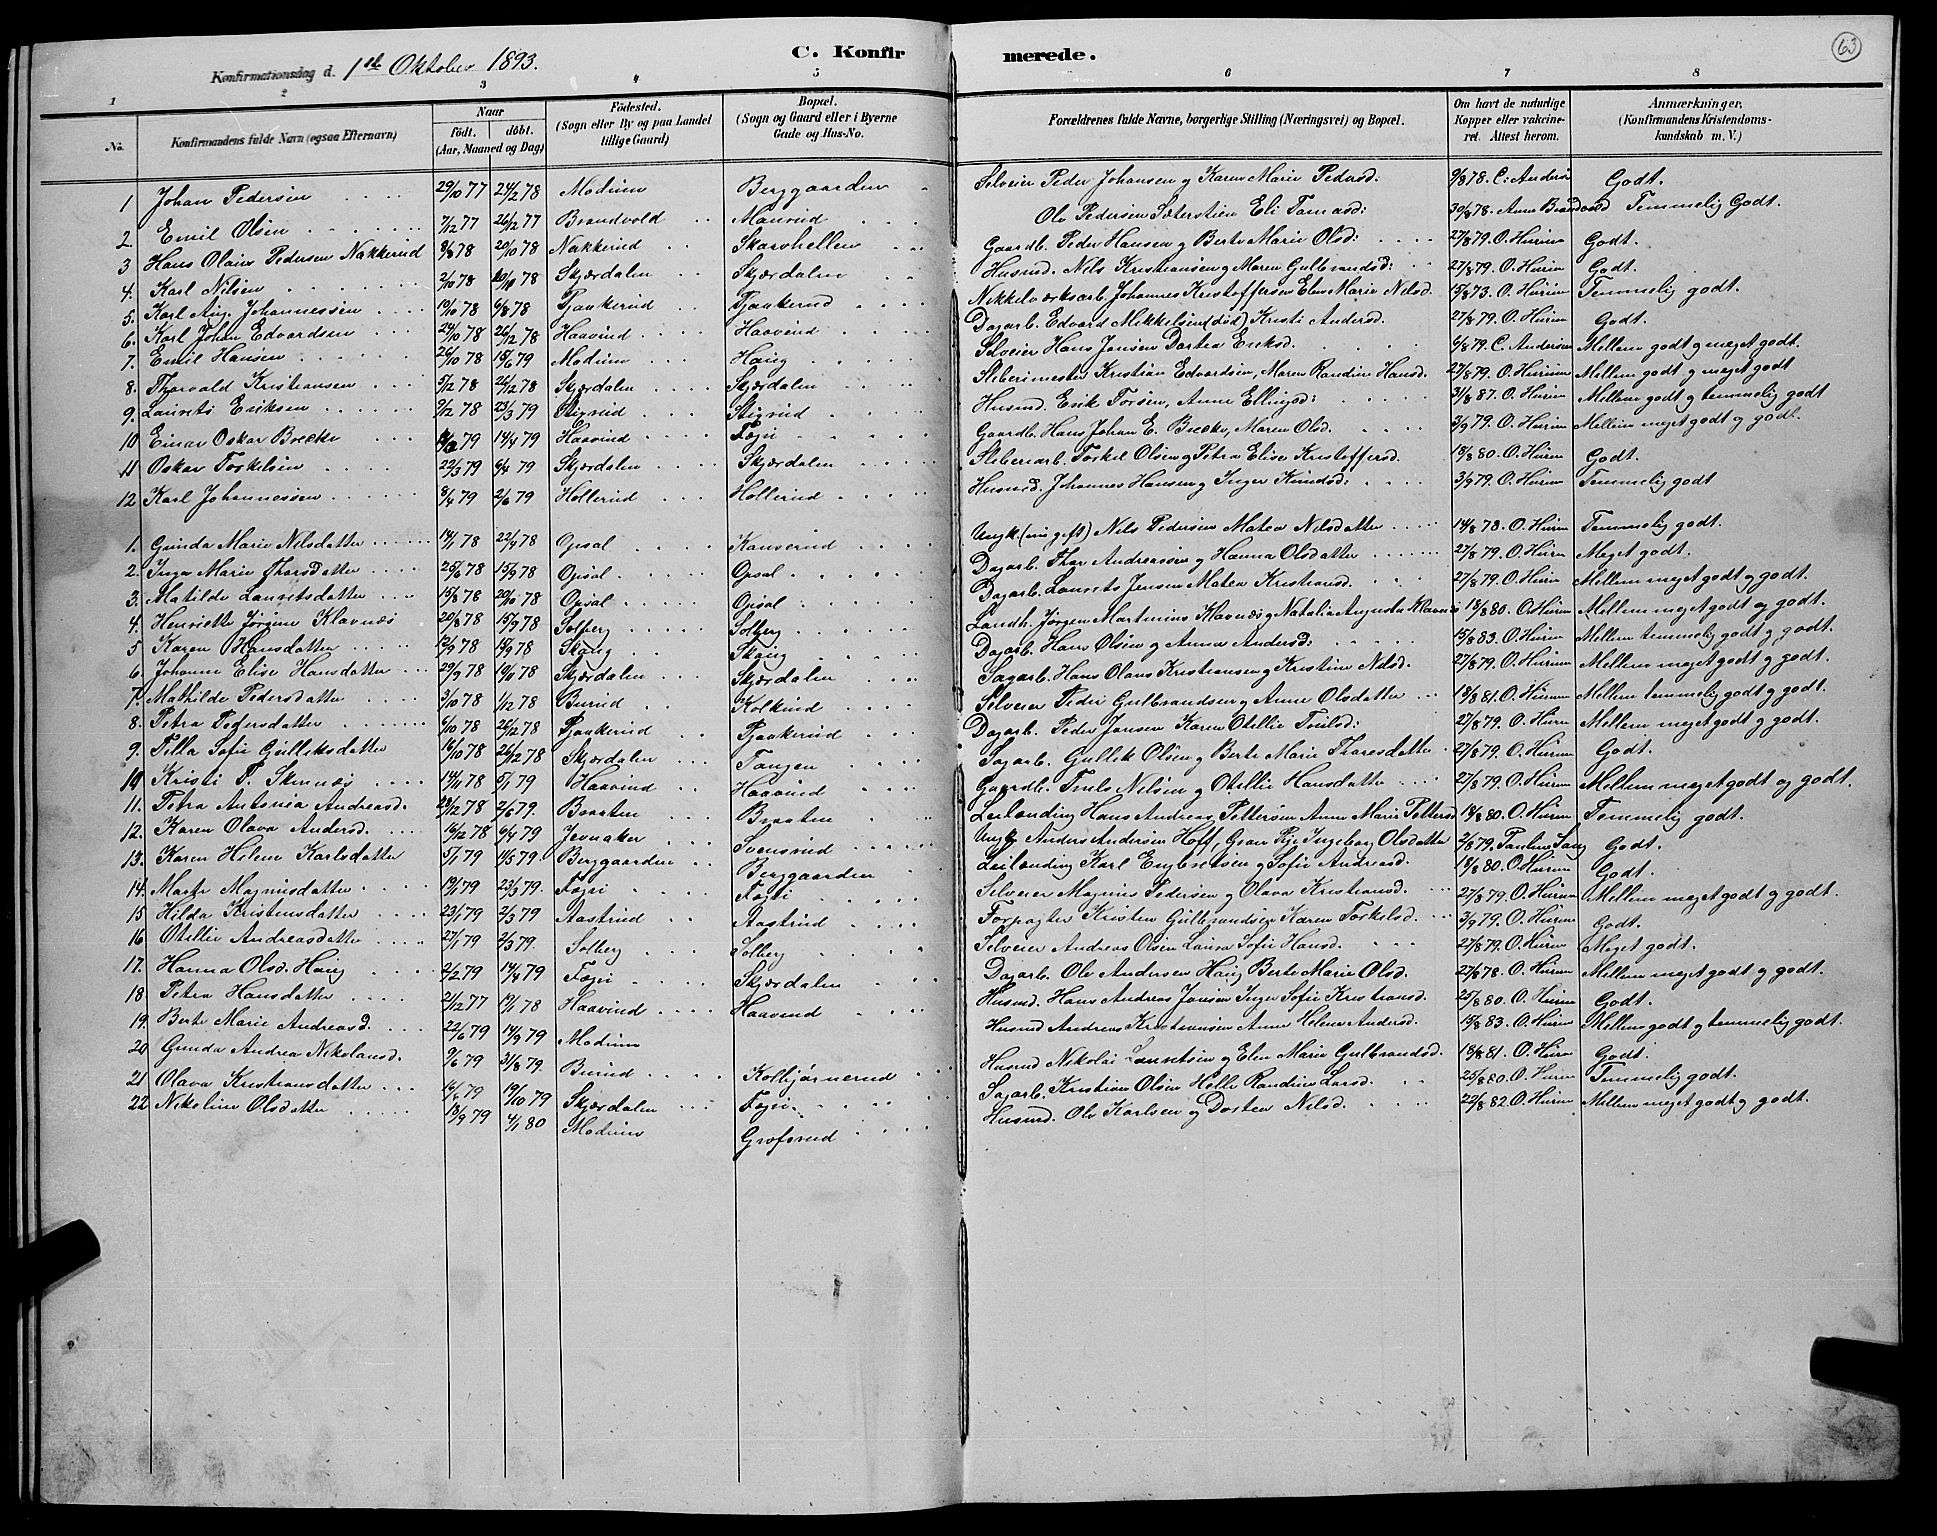 C. Konfirmerede.
63
Konfirmationsdag d. 1ste Oktober 1893.
1 2 3 4 5 6 7 8
No.
Konfirmandens fulde Navn (ogsaa Efternavn)
Naar
født. døbt.
(Aar, Maaned og Dag)
Fødested.
(Sogn eller By og paa Landet
tillige Gaard)
Bopæl.
(Sogn og Gaard eller i Byerne
Gade og Hus-No.
Forældrenes fulde Navne, borgerlige Stilling (Næringsvei) og Bopæl.
Om havt de naturlige
Kopper eller vakcine-
ret. Attest herom.
Anmærkninger,
(Konfirmandens Kristendoms-
kundskab m. V.)
1 Johan Pedersen 29/10 77 24/2 78 Modum Berggaarden Selveier Peder Johansen og Karen Marie Pedersd: 9/8 78. C. Anders Godt.
2. Emil Olsen 7/12 77 26/12 77 Brandvold Ole Pedersen Sæterstøen Eli Tomasd: 30/8 78. Anne Temmelig Godt.
3 Hans Olaus Pedersen Nakkerud 8/8 78 20/10 78 Nakkerud Skarvhellen Gaardb. Peder Hansen og Berte Marie Olsd: 27/8 79. O. Hurum Godt.
4. Karl Nilsen 2/10 78 Skjærdalen Skjærdalen Husmd. Nils Kristiansen og Maren Gulbrandsd: 27/8 79. O. Hurum Godt.
5. Karl Aug. Johannessen 19/10 78 6/8 78 Pjaakerud Pjaakerud Nikkelværksarb. Johannes Kristoffersen Elen Marie Nilsd. O. Hurum Temmelig godt.
6. Karl Johan Edvardsen 24/10 78 26/12 78 Haavind Haavind Dagarb. Edvard Mikkelsen (død) Kristi Andersd. 27/8 79. O. Hurum Godt.
7. Emil Hansen 26/10 78 15/6 79 Modum Haug Selveier Hans Jonsen Dortea Eriksd. 6/8 79. C. Andersen Mellem godt og meget godt.
8. Thorvald Kristiansen 5/12 78 26/12 78 Skjærdalen Skjærdalen Sliberimester Kristian Edvardsen, Maren Randine Hansd. 27/8 79. O. Hurum Mellem godt og meget godt
9. Laurets Eriksen 9/12 78 23/3 79 Stigrud Stigrud Husmd. Erik Torsen, Anne Ellingsd: 31/8 87. O. Hurum Mellem godt og temmelig godt
10 Einar Oskar Brecke 79 14/4 79 Haavind Fægri Gaardb. Hans Johan E. Brecke, Maren Olsd. 3/9 79. O. Hurum Mellem meget godt og godt.
11 Oskar Torkelsen 22/3 79 6/4 79 Skjærdalen Skjærdalen Sliberiarb. Torkel Olsen og Petra Elise Kristoffersd. 18/8 80. O. Hurum Godt.
12 Karl Johannessen 8/4 79 2/6 79 Hollerud Hollerud Husmd. Johannes Hansen og Inger Knudsd: 3/9 79. O. Hurum Temmelig godt
1. Gunda Marie Nilsdatter 14/1 78 22/4 78 Opsal Ungk. (nu gift) Nils Pedersen Matea Nilsdatter 14/8 78. O. Hurum Temmelig godt.
2. Inga Marie Thorsdatter 25/6 78 15/9 78 Opsal Opsal Dagarb. Thor Andreassen og Hanna Olsdatter 27/8 79. O. Hurum Meget godt.
3. Matilde Lauretsdatter 15/8 78 20/10 78 Opsal Opsal Dagarb. Laurets Jensen Matea Kristiansd. 27/8 79. O. Hurum Mellem meget godt og godt.
4. Henriette Jørgine Klavnæs 20/8 78 15/9 78 Solberg Solberg Landh. Jørgen Martinius Klavnæs og Natalie Augusta Klavnæs 18/8 80. O. Hurum Mellem meget godt og godt.
5 Karen Hansdatter 78 78 Skoug Skoug Dagarb. Hans Olsen og Anna Andersd: 15/8 83. O. Hurum Mellem temmelig godt og godt.
6. Johanne Elise Hansdatter 29/9 78 19/10 78 Skjærdalen Skjærdalen Sagarb. Hans Olaus Kristiansen og Kristine Nilsd. 27/8 79. O. Hurum Mellem meget godt og godt.
7. Mathilde Pedersdatter 3/10 78 1/12 78 Burud Selveier Peder Gulbrandsen og Anne Olsdatter 18/8 81. O. Hurum Mellem temmelig godt og godt.
8. Petra Pedersdatter 6/10 78 26/12 78 Pjaakerud Pjaakerud Dagarb. Peder Jonsen Karen Otellie Trulsd: 27/8 79. O. Hurum Mellem meget godt og godt.
9. Tilla Sofie Gulleksdatter 16/10 78 26/12 78 Skjærdalen Tangen Sagarb. Gullek Olsen og Berte Marie Thoresdatter 27/8 79. O. Hurum Godt.
10 Kristi T. Skinnæs 14/11 78 5/1 79 Haavind Haavind Gaardb. Truls Nilsen og Otellie Hansdatter 27/8 79. O. Hurum Mellem meget godt og godt.
11. Petra Antonia Andreasd. 23/12 78 2/6 79. Braaten Braaten Leilænding Hans Andreas Pettersen Anne Marie Pettersd 18/8 80. O. Hurum Temmelig godt.
12. Karen Olava Andersd. 16/12 78 6/4 79 Jevnaker Svensrud Ungk Anders Andersen Hoff, Gran Pige Ingeborg Olsdatter 2/8 79. Pauline Godt.
13. Karen Helene Karlsdatter 5/1 79 79. Berggaarden Berggaarden Leilænding Karl Engbretsen og Sofie Andreasd. 18/8 80. O. Hurum Godt.
14. Marte Magnusdatter 19/1 79 23/3 79. Fægri Fægri Selveier Magnus Pedersen og Olava Kristiansd. 27/8 79. O. Hurum Mellem meget godt og godt.
15 Hilda Kristensdatter 23/1 79 2/3 79 Aastrud Aastrud Forpagter Kristen Gulbrandsen Karen Torkelsd. 3/9 79. O. Hurum Godt.
16 Otellie Andreasdatter 27/1 79 2/3 79. Solberg Solberg Selveier Andreas Olsen Laura Sofie Hansd. 27/8 79. O. Hurum Meget godt.
17. Hanna Olsd. Haug 2/2 79 14/4 79 Fægri Skjærdalen Dagarb. Ole Andersen Haug Berte Marie Olsd. 27/6 78. O. Hurum Mellem meget godt og godt.
18 Petra Hansdatter 21/12 77 78 Haavind Haavind Husmd. Hans Andreas Jonsen Inger Sofie Kristiansd. 25/8 80. O. Hurum Godt.
19. Berte Marie Andreasd. 22/6 79 14/9 79 Modum Husmd Andreas Kristiansen Anne Helene Andersd. 15/8 83. O. Hurum Mellem godt og temmelig godt.
20 Gunda Andrea Nikolaisd. 9/6 79 31/8 79. Burud Kolbjørnerud Husmd Nikolai Lauretsen og Elen Marie Gulbrandsd. 18/8 81. O. Hurum Godt.
21 Olava Kristiansdatter 16/6 79 19/10 79 Skjærdalen Fægri Sagarb. Kristian Olsen Helle Randine Larsd. 25/8 80. O. Hurum Temmelig godt.
22 Nikoline Olsdatter 18/9 79 4/1 80 Modum Grøfsrud Husmd. Ole Karlsen og Dortea Nilsd. 22/8 82. O. Hurum Mellem meget godt og godt.